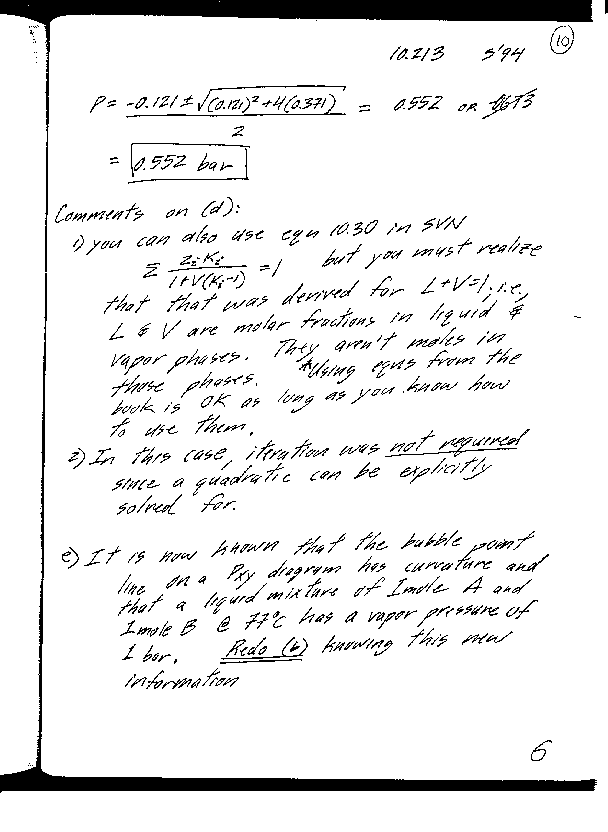 10
10.213 S'94
P = -0.121 ± √(0.121)² + 4(0.371) = 0.552 OR
2
= 0.552 bar
Comments on (d):
1) you can also use eqn 10.30 in SVN
Σ ZiKi / 1+V(Ki-1) = 1 but you must realize
that that was derived for L+V=1, i.e.,
L & V are molar fractions in liquid &
vapor phases. They aren't moles in
those phases. *Using eqns from the
book is OK as long as you know how
to use them.
2) In this case, iteration was not required
since a quadratic can be explicitly
solved for.
e) It is now known that the bubble point
line on a Pxy diagram has curvature and
that a liquid mixture of 1mole A and
1mole B @ 77°C has a vapor pressure of
1 bar. Redo (b) knowing this new
information
6